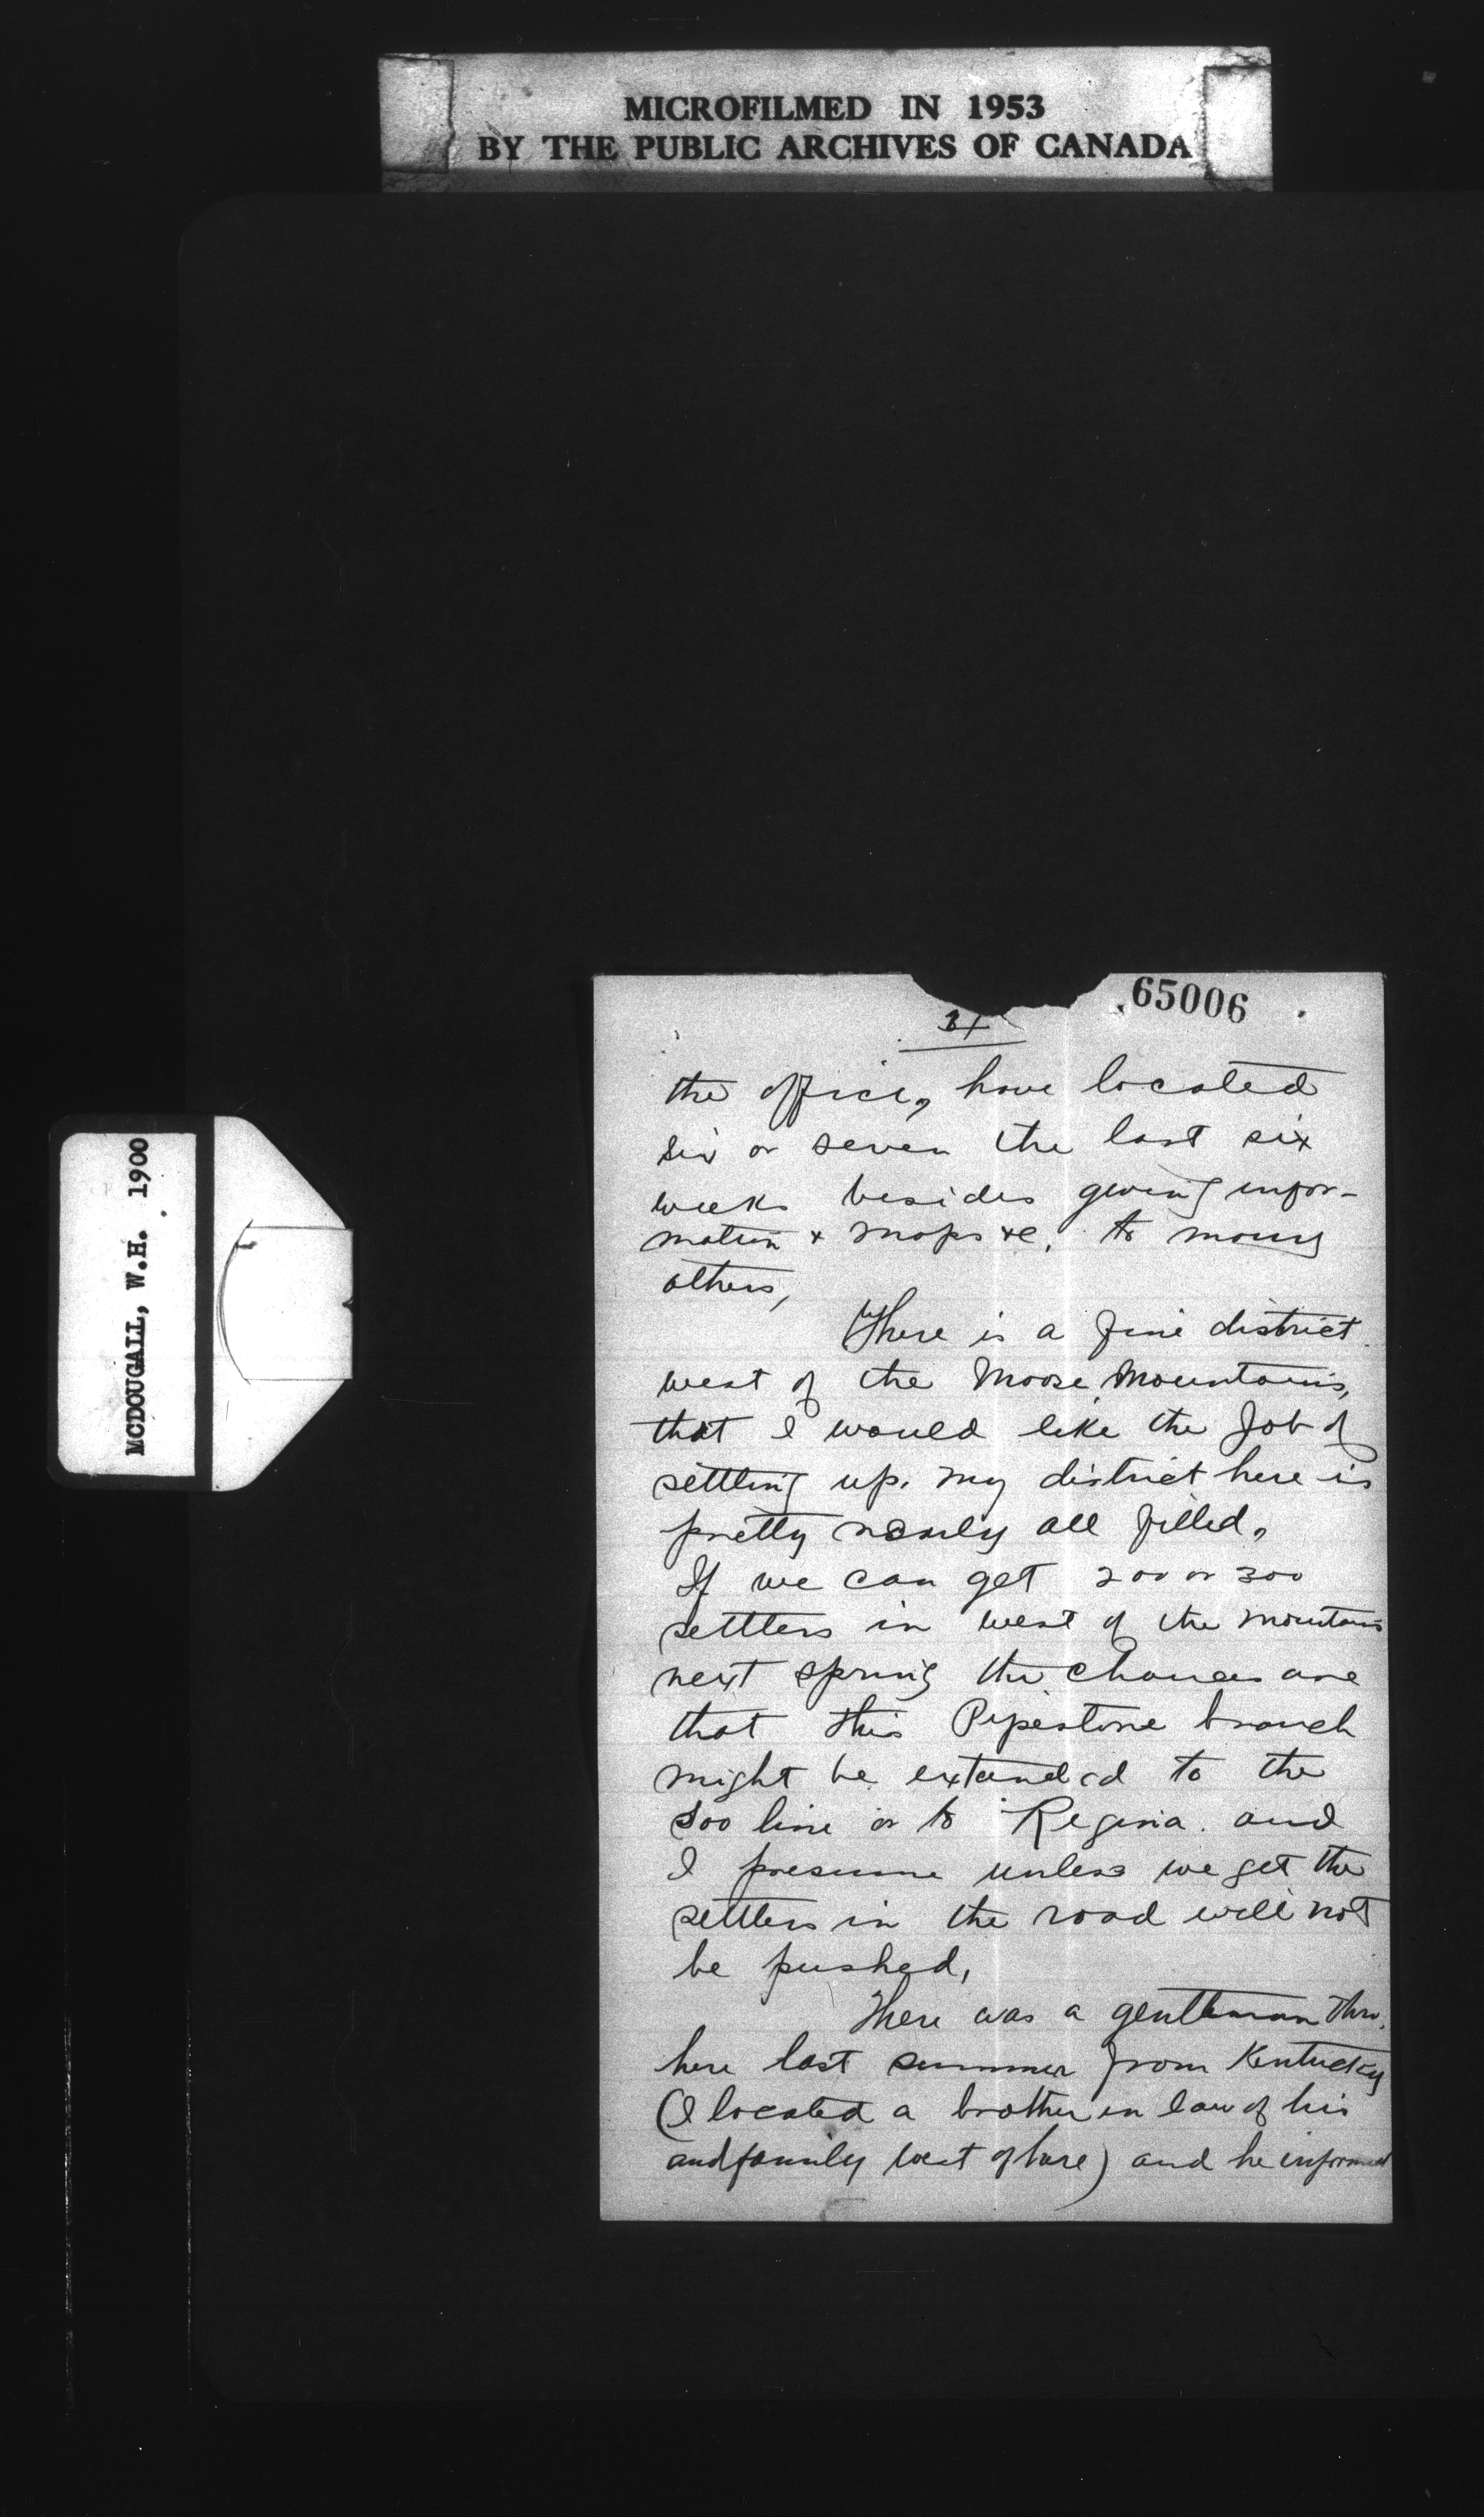 MICROFILMED IN 1953
BY THE PUBLIC ARCHIVES OF CANADA
MCDOUGALL, W.H. 1900
65006
the office, have located
six or seven the last six
weeks besides giving infor-
mation & maps &c, to many
others,
There is a fine district
west of the Moose Mountains,
that I would like the job of
settling up. my district here is
pretty nearly all filled,
If we can get 200 or 300
settlers in west of the mountains
next spring the chances are
that this Pipestone branch
might be extended to the
Soo line or to Regina. and
I presume unless we get the
settlers in the road will not
be pushed,
There was a gentleman thro.
here last summer from Kentucky
(I located a brother in law of his
and family west of here) and he informed